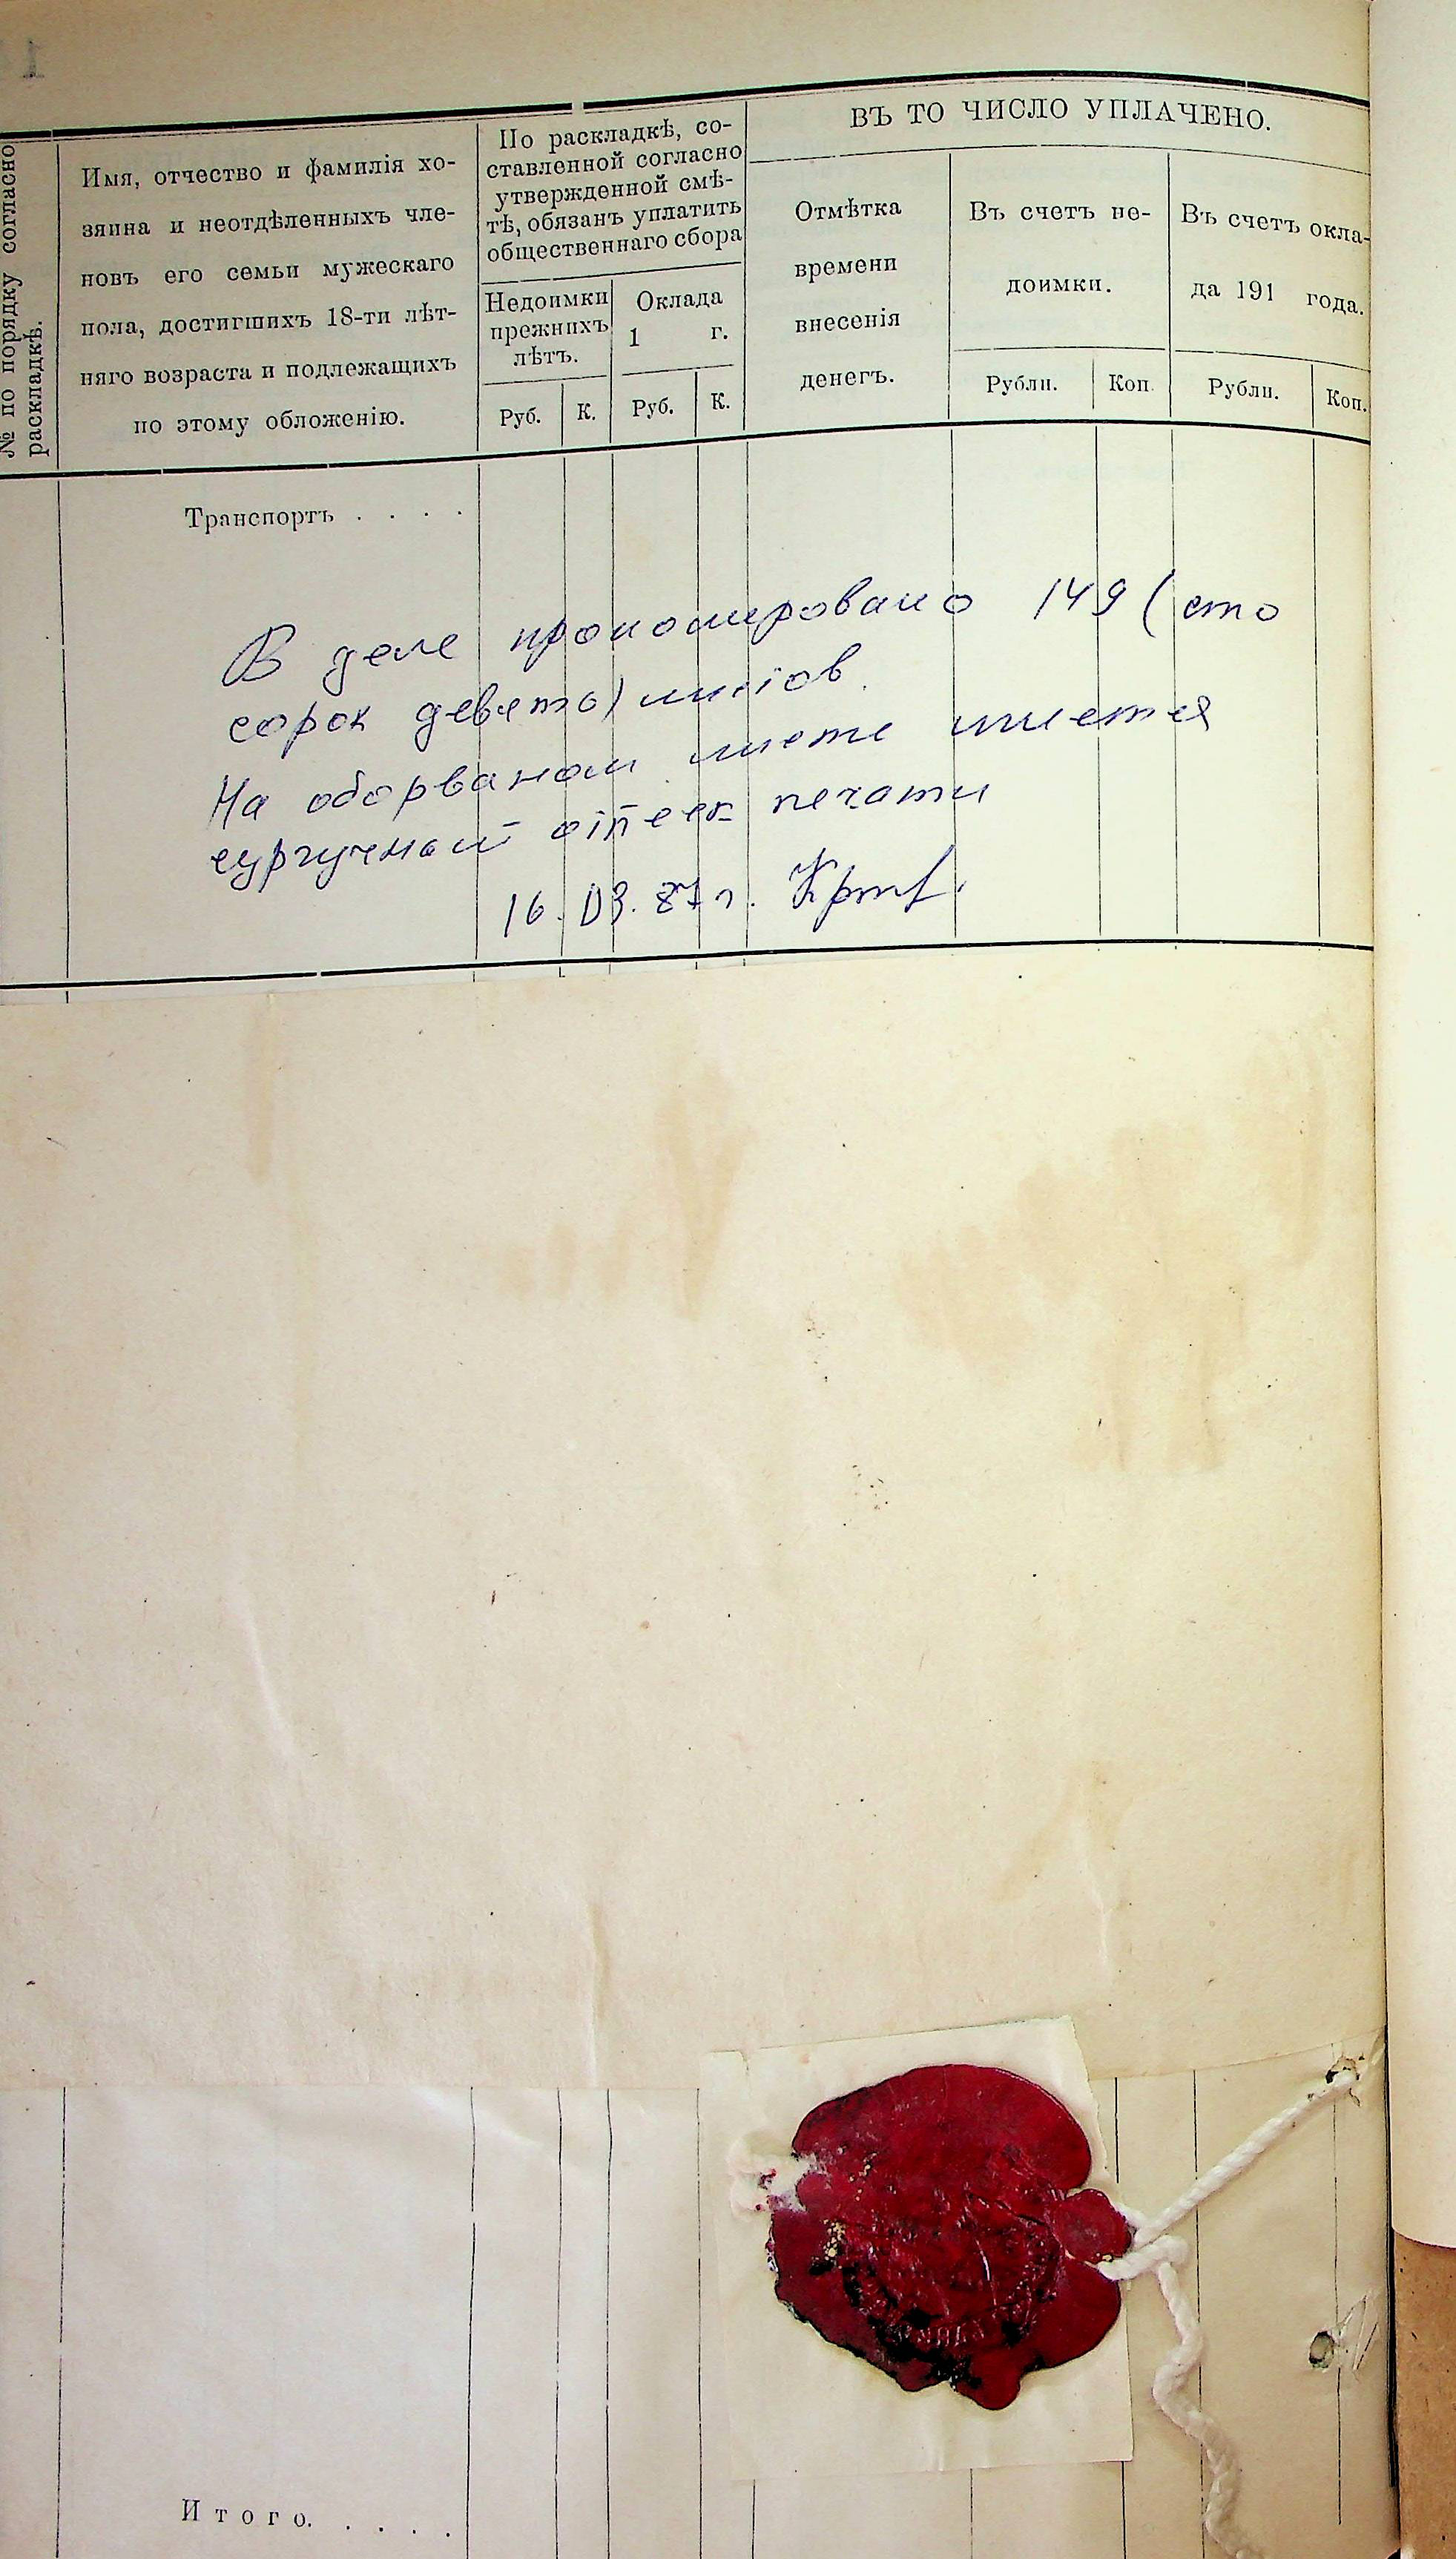 1
№ по порядку согласно
раскладкѣ.
Имя, отчество и фамилія хо-
зяина и неотдѣленныхъ чле-
новъ его семьи мужескаго
пола, достигшихъ 18-ти лѣт-
няго возраста и подлежащихъ
по этому обложенію.
По раскладкѣ, со-
ставленной согласно
утвержденной смѣ-
тѣ, обязанъ уплатить
общественнаго сбора
Недоимки
прежнихъ
лѣтъ.
Руб. К.
Оклада
1 г.
Руб. К.
ВЪ ТО ЧИСЛО УПЛАЧЕНО.
Отмѣтка
времени
внесенія
денегъ.
Въ счетъ не-
доимки.
Рубли. Коп.
Въ счетъ окла-
да 191 года.
Рубли. Коп.
Транспортъ . . . .
В деле пронумеровано 149 (сто
сорок девять) листов.
На оборваном листе имеется
сургучный оттиск печати
16.03.87 г.
Итого. . . . .